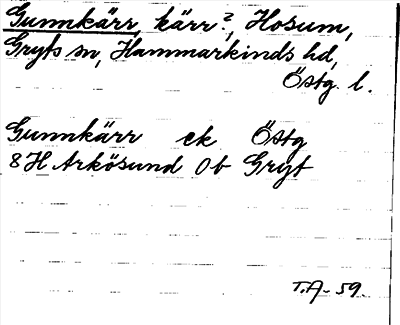 Gunnkärr, kärr?, Hosum,
Gryts sn, Hammarkinds hd,
Östg. l.
Gunnkärr ek Östg
8H Arkösund 0b Gryt
T.A-59.